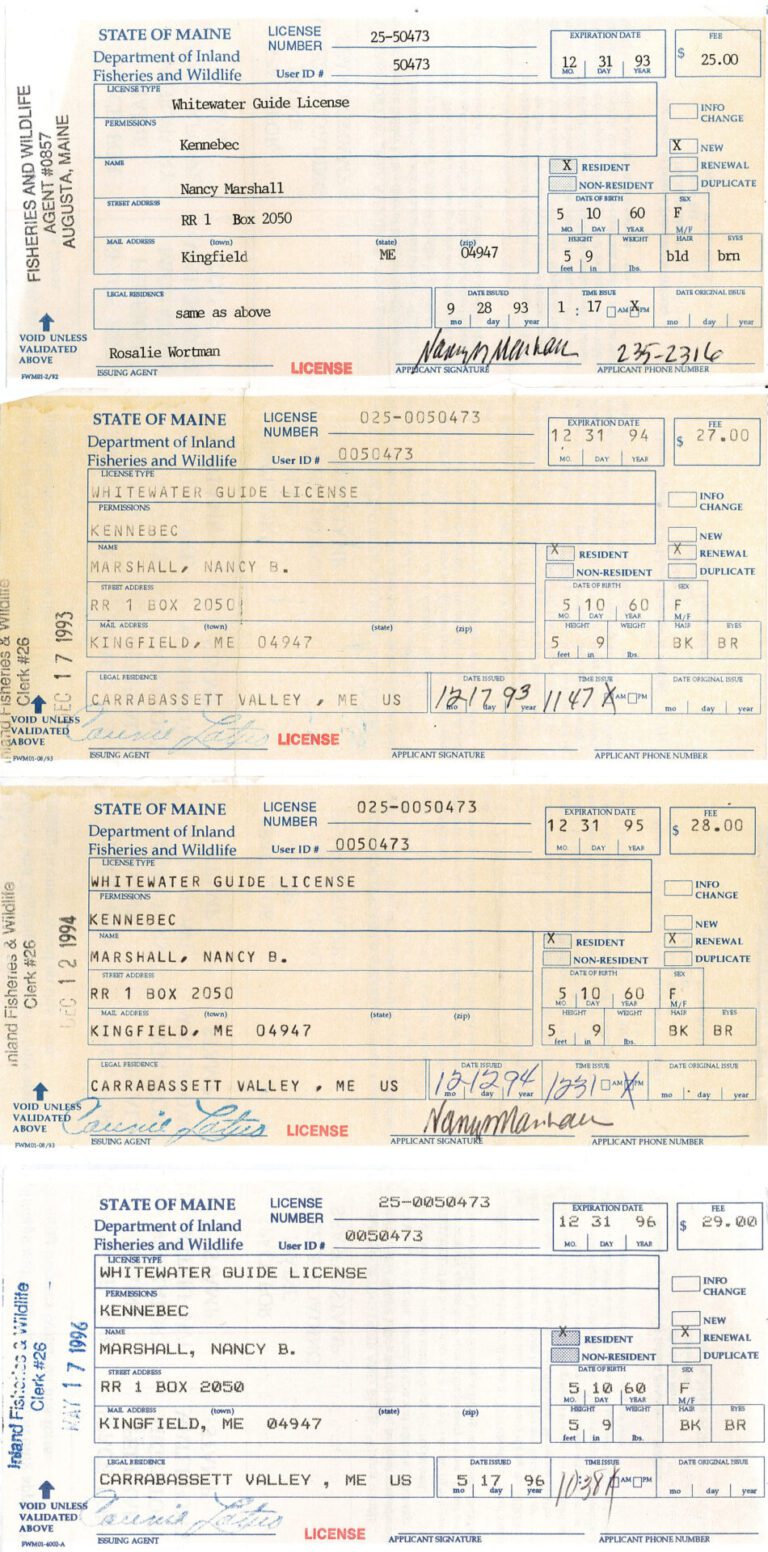 STATE OF MAINE
Department of Inland
Fisheries and Wildlife
LICENSE NUMBER 25-50473
User ID # 50473
EXPIRATION DATE
12 31 93
MO. DAY YEAR
FEE
$ 25.00
LICENSE TYPE
Whitewater Guide License
PERMISSIONS
Kennebec
NAME
Nancy Marshall
STREET ADDRESS
RR 1 Box 2050
MAIL ADDRESS (town) (state) (zip)
Kingfield ME 04947
INFO CHANGE
X NEW
RENEWAL
DUPLICATE
X RESIDENT
NON-RESIDENT
DATE OF BIRTH SEX
5 10 60 F
MO. DAY YEAR M/F
HEIGHT WEIGHT HAIR EYES
5 9 bld brn
feet in lbs.
LEGAL RESIDENCE
same as above
DATE ISSUED
9 28 93
mo day year
TIME ISSUE
1 : 17 AM X PM
DATE ORIGINAL ISSUE
mo day year
FISHERIES AND WILDLIFE
AGENT #0857
AUGUSTA, MAINE
VOID UNLESS
VALIDATED
ABOVE
FWM01-2/92
Rosalie Wortman
ISSUING AGENT
LICENSE
Nancy B Marshall
APPLICANT SIGNATURE
235-2316
APPLICANT PHONE NUMBER
STATE OF MAINE
Department of Inland
Fisheries and Wildlife
LICENSE NUMBER 025-0050473
User ID # 0050473
EXPIRATION DATE
12 31 94
MO. DAY YEAR
FEE
$ 27.00
LICENSE TYPE
WHITEWATER GUIDE LICENSE
PERMISSIONS
KENNEBEC
NAME
MARSHALL, NANCY B.
STREET ADDRESS
RR 1 BOX 2050
MAIL ADDRESS (town) (state) (zip)
KINGFIELD, ME 04947
INFO CHANGE
NEW
X RENEWAL
DUPLICATE
X RESIDENT
NON-RESIDENT
DATE OF BIRTH SEX
5 10 60 F
MO. DAY YEAR M/F
HEIGHT WEIGHT HAIR EYES
5 9 BK BR
feet in lbs.
LEGAL RESIDENCE
CARRABASSETT VALLEY , ME US
DATE ISSUED
12 17 93
mo day year
TIME ISSUE
1147 X AM PM
DATE ORIGINAL ISSUE
mo day year
Inland Fisheries & Wildlife
Clerk #26
DEC 17 1993
VOID UNLESS
VALIDATED
ABOVE
FWM01-08/93
ISSUING AGENT
LICENSE
APPLICANT SIGNATURE
APPLICANT PHONE NUMBER
STATE OF MAINE
Department of Inland
Fisheries and Wildlife
LICENSE NUMBER 025-0050473
User ID # 0050473
EXPIRATION DATE
12 31 95
MO. DAY YEAR
FEE
$ 28.00
LICENSE TYPE
WHITEWATER GUIDE LICENSE
PERMISSIONS
KENNEBEC
NAME
MARSHALL, NANCY B.
STREET ADDRESS
RR 1 BOX 2050
MAIL ADDRESS (town) (state) (zip)
KINGFIELD, ME 04947
INFO CHANGE
NEW
X RENEWAL
DUPLICATE
X RESIDENT
NON-RESIDENT
DATE OF BIRTH SEX
5 10 60 F
MO. DAY YEAR M/F
HEIGHT WEIGHT HAIR EYES
5 9 BK BR
feet in lbs.
LEGAL RESIDENCE
CARRABASSETT VALLEY , ME US
DATE ISSUED
12 12 94
mo day year
TIME ISSUE
1231 AM X PM
DATE ORIGINAL ISSUE
mo day year
Inland Fisheries & Wildlife
Clerk #26
DEC 12 1994
VOID UNLESS
VALIDATED
ABOVE
FWM01-08/93
ISSUING AGENT
LICENSE
Nancy B Marshall
APPLICANT SIGNATURE
APPLICANT PHONE NUMBER
STATE OF MAINE
Department of Inland
Fisheries and Wildlife
LICENSE NUMBER 25-0050473
User ID # 0050473
EXPIRATION DATE
12 31 96
MO. DAY YEAR
FEE
$ 29.00
LICENSE TYPE
WHITEWATER GUIDE LICENSE
PERMISSIONS
KENNEBEC
NAME
MARSHALL, NANCY B.
STREET ADDRESS
RR 1 BOX 2050
MAIL ADDRESS (town) (state) (zip)
KINGFIELD, ME 04947
INFO CHANGE
NEW
X RENEWAL
DUPLICATE
X RESIDENT
NON-RESIDENT
DATE OF BIRTH SEX
5 10 60 F
MO. DAY YEAR M/F
HEIGHT WEIGHT HAIR EYES
5 9 BK BR
feet in lbs.
LEGAL RESIDENCE
CARRABASSETT VALLEY , ME US
DATE ISSUED
5 17 96
mo day year
TIME ISSUE
10:38 X AM PM
DATE ORIGINAL ISSUE
mo day year
Inland Fisheries & Wildlife
Clerk #26
MAY 17 1996
VOID UNLESS
VALIDATED
ABOVE
FWM01-6002-A
ISSUING AGENT
LICENSE
APPLICANT SIGNATURE
APPLICANT PHONE NUMBER